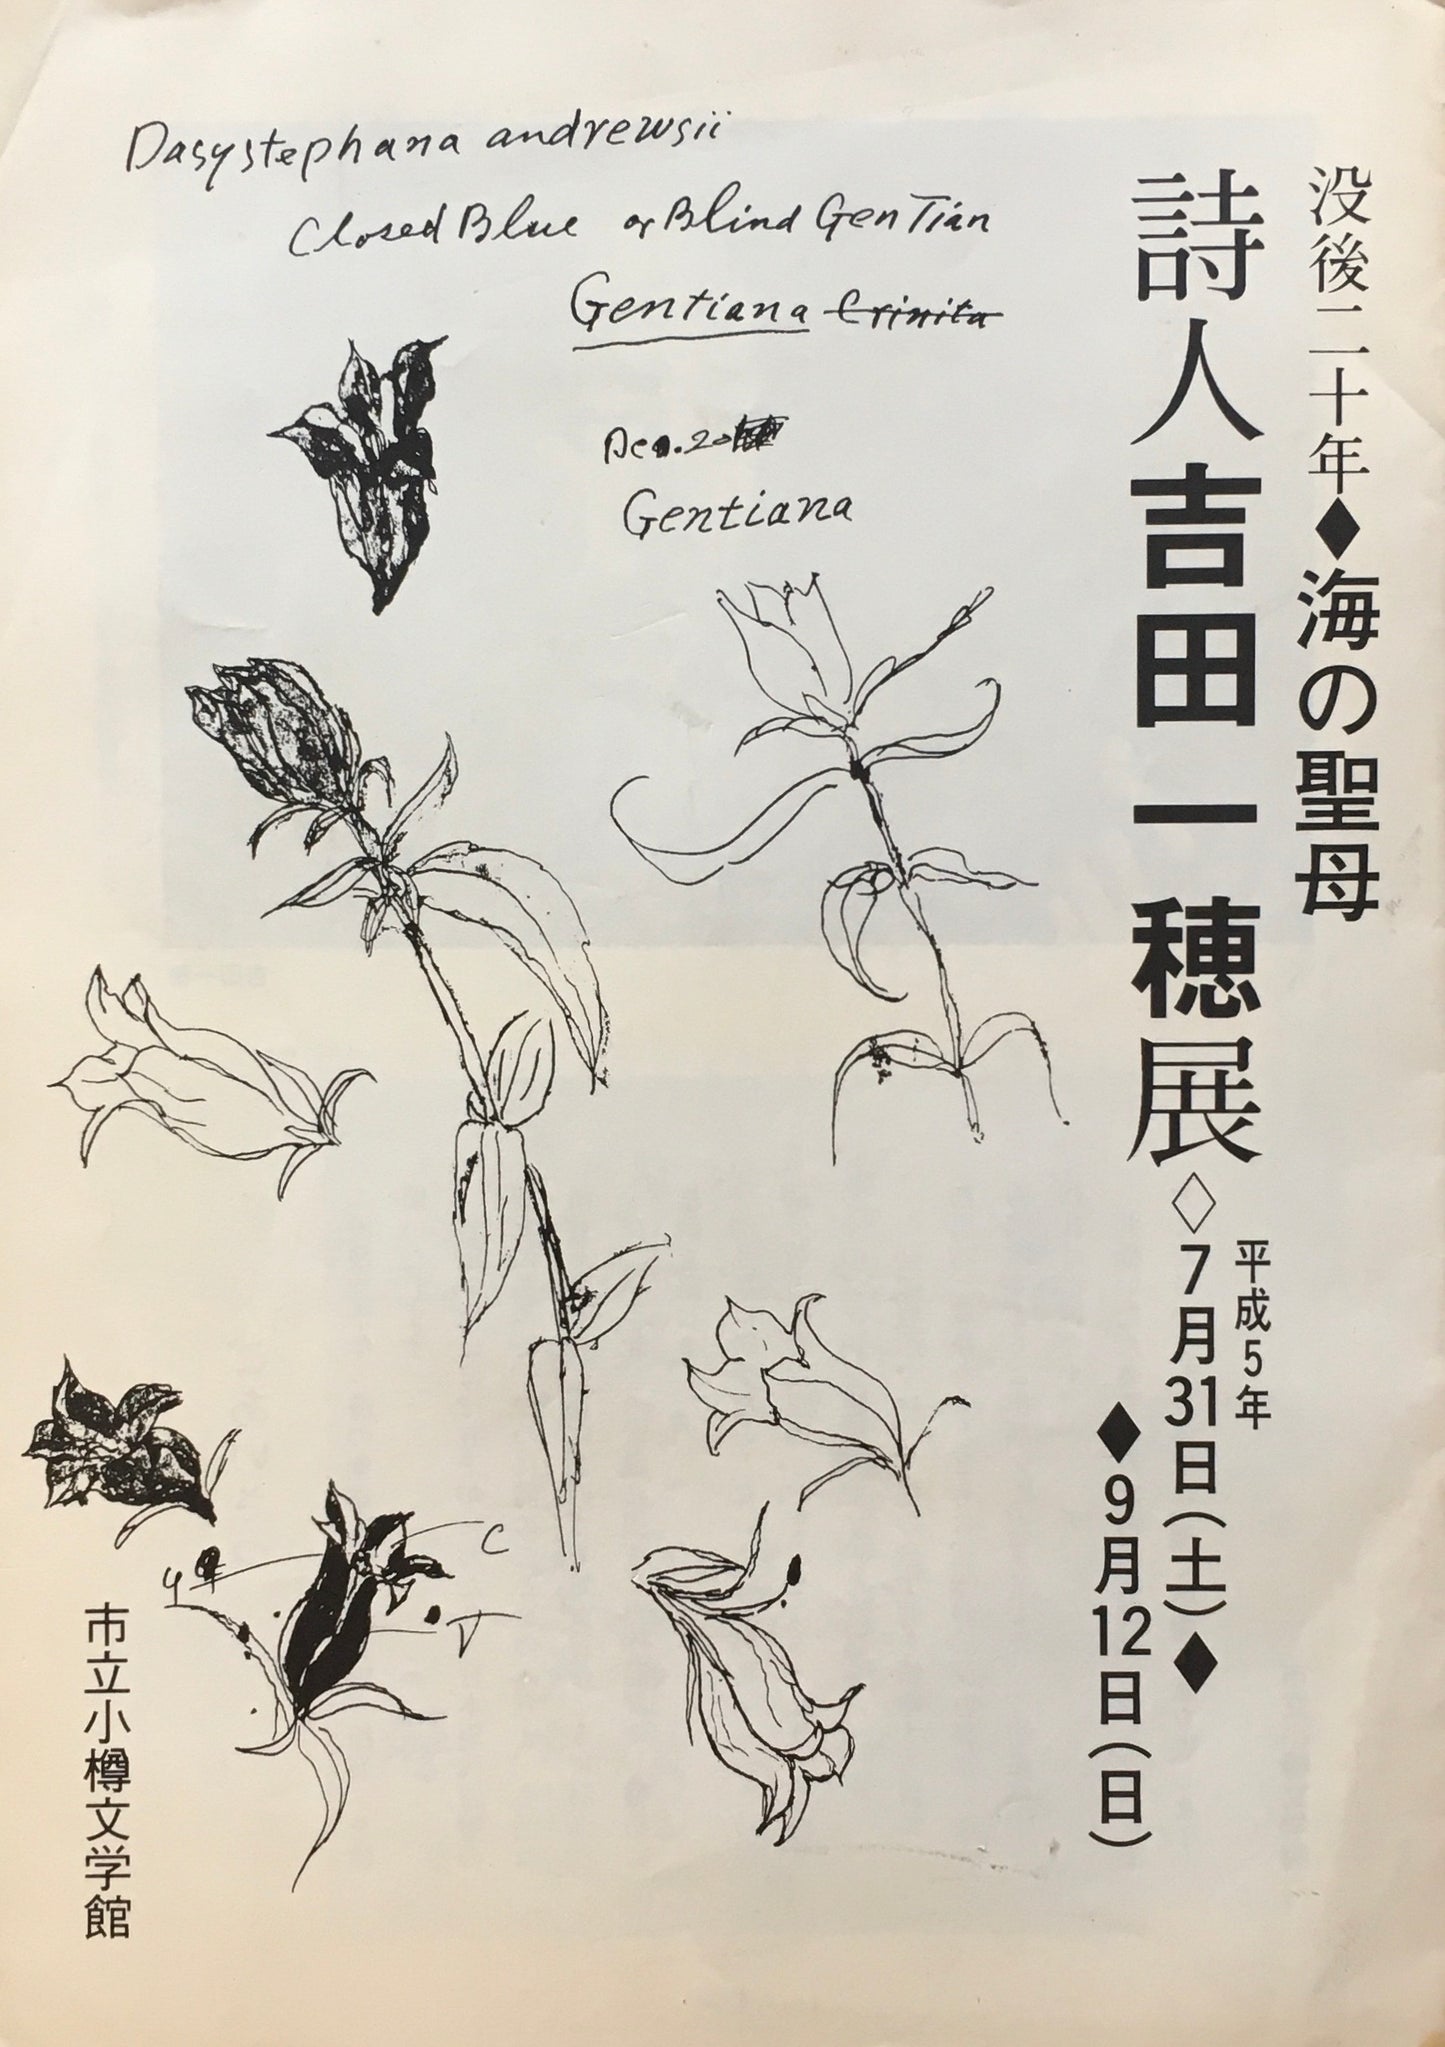 没後二十年◆海の聖母
詩人吉田一穂展◇平成5年7月31日(土)◆
◆9月12日(日)
Dasystephana andrewsii
Closed Blue or Blind Gentian
Gentiana Crinita
Gentiana
C
市立小樽文学館